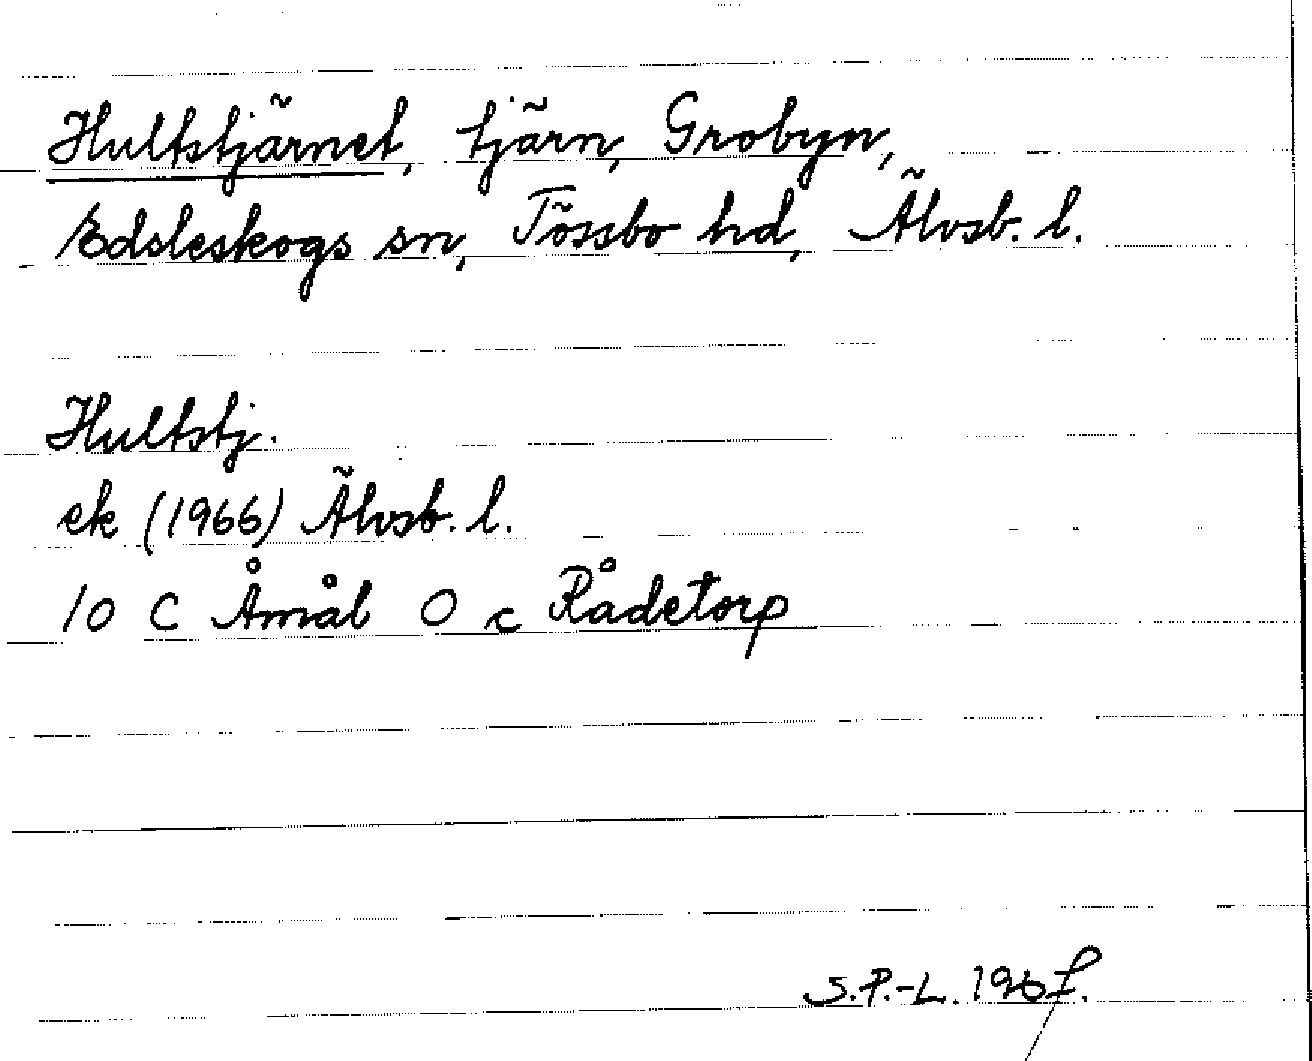 Hultstjärnet, tjärn, Grobyn,
Edsleskogs sn, Tössbo hd, Älvsb. l.
Hultstj.
ek (1966) Älvsb. l.
10 C Åmål 0 c Rådetorp
S.P.-L. 1967.